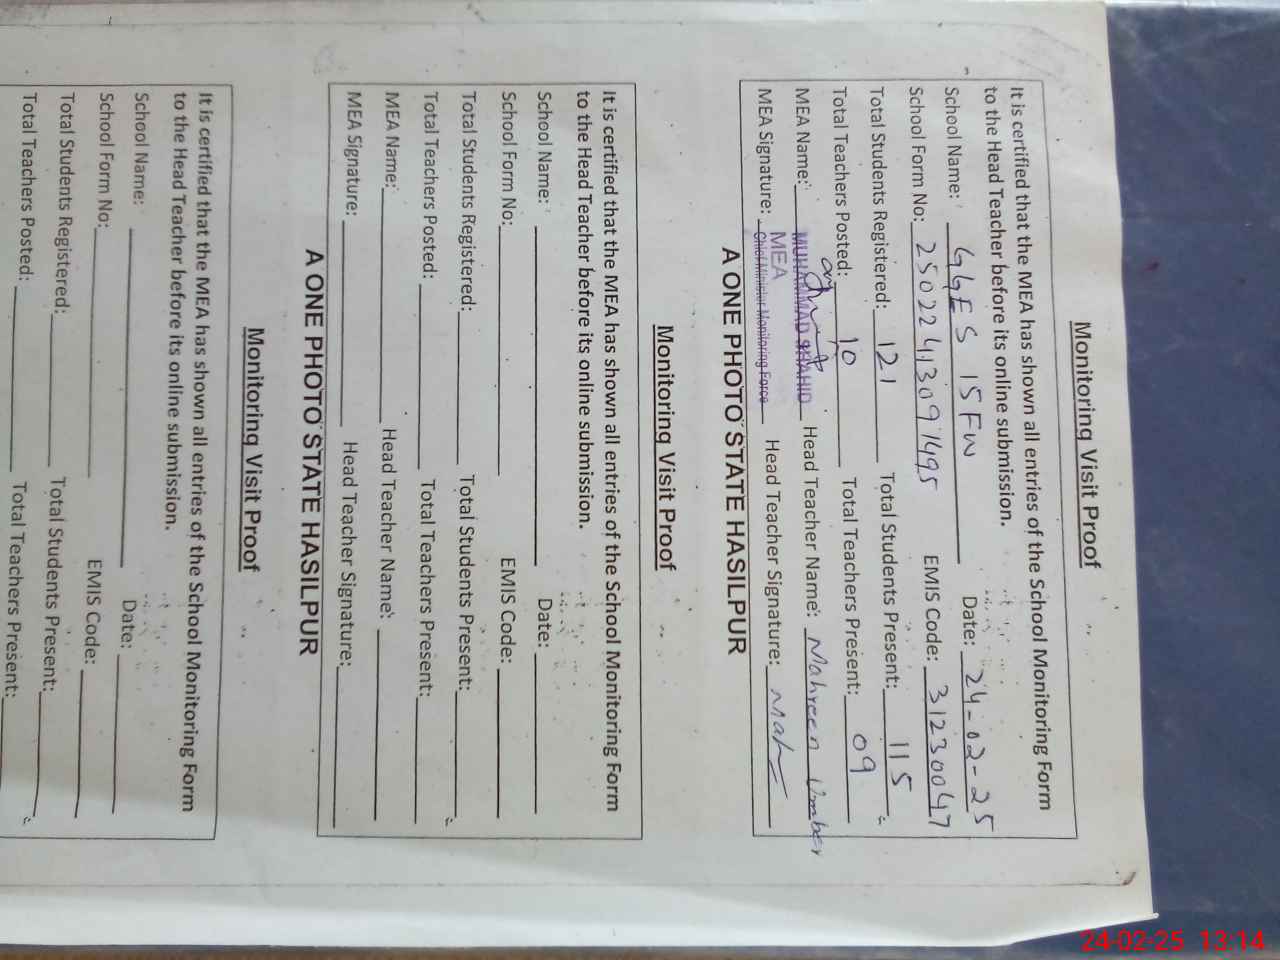 Monitoring Visit Proof
It is certified that the MEA has shown all entries of the School Monitoring Form
to the Head Teacher before its online submission.
School Name: GGES 15 FW Date: 24-02-25
School Form No: 25022413091495 EMIS Code: 31230047
Total Students Registered: 121 Total Students Present: 115
Total Teachers Posted: 10 Total Teachers Present: 09
MEA Name: MUHAMMAD SHAHID Head Teacher Name: Mahreen Umber
MEA Signature: MEA Head Teacher Signature:
Chief Minister Monitoring Force
A ONE PHOTO STATE HASILPUR
Monitoring Visit Proof
It is certified that the MEA has shown all entries of the School Monitoring Form
to the Head Teacher before its online submission.
School Name: Date:
School Form No: EMIS Code:
Total Students Registered: Total Students Present:
Total Teachers Posted: Total Teachers Present:
MEA Name: Head Teacher Name:
MEA Signature: Head Teacher Signature:
A ONE PHOTO STATE HASILPUR
Monitoring Visit Proof
It is certified that the MEA has shown all entries of the School Monitoring Form
to the Head Teacher before its online submission.
School Name: Date:
School Form No: EMIS Code:
Total Students Registered: Total Students Present:
Total Teachers Posted: Total Teachers Present:
24-02-25 13:14